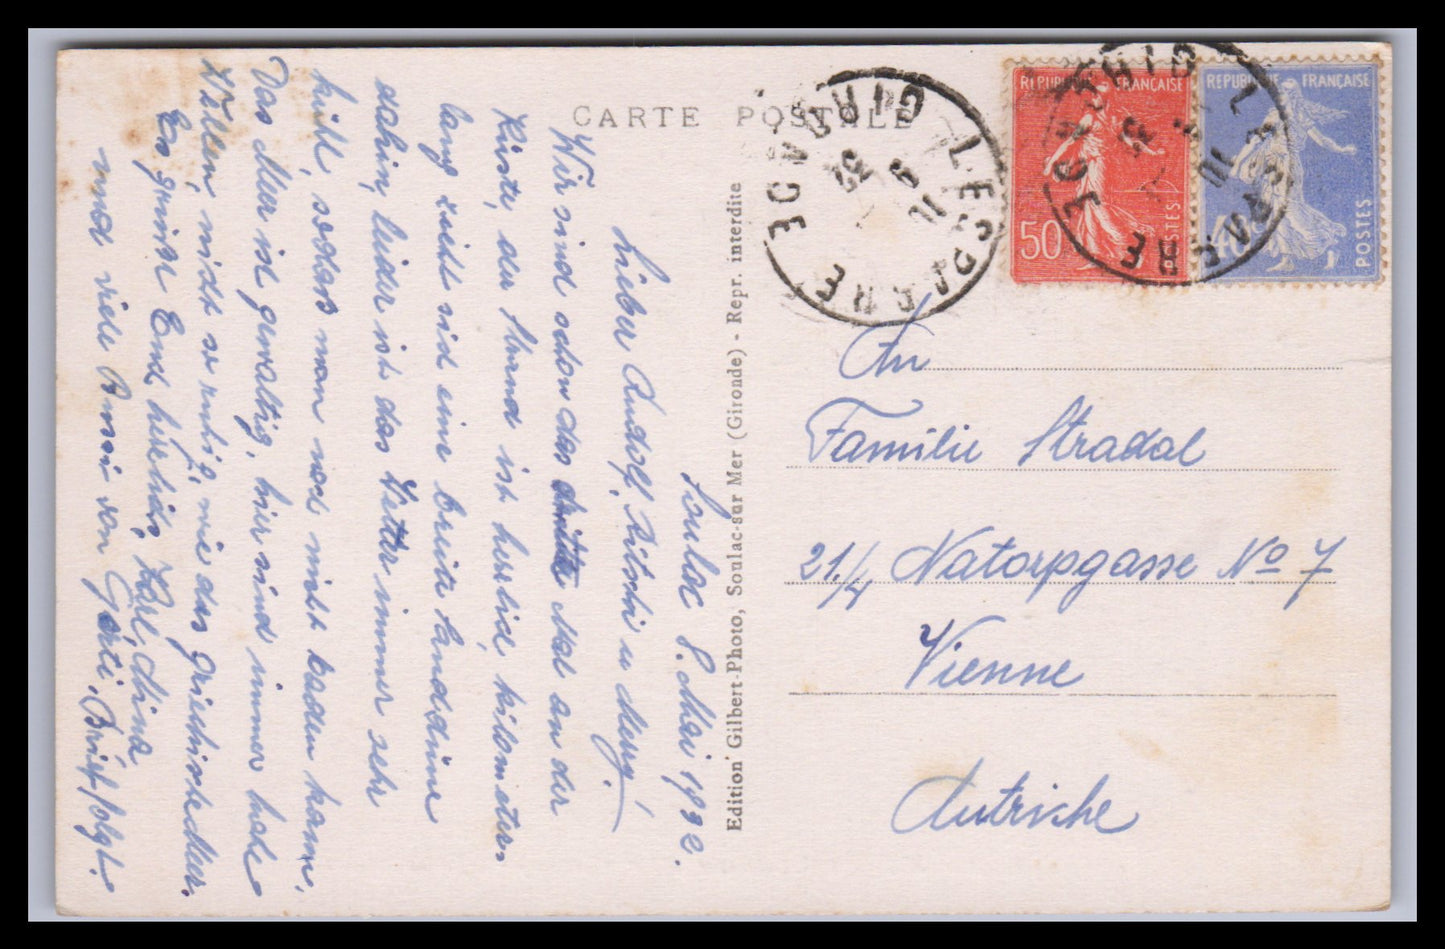 CARTE POSTALE
Soulac 8. Mai 1932.
Lieber Rudolf, u Mery!
Wir sind schon das dritte Mal an der
Küste, der Strand ist herrlich, kilometer-
lang zieht sich eine breite Sanddüne
dahin, leider ist das Wetter immer sehr
kühl, sodass man noch nicht baden kann.
Das Meer ist gewaltig, hier sind immer hohe
Wellen, nicht so ruhig wie das griechische Meer.
Es grüsst Euch herzlich, Karl, Mina
und viele Bussi von Gerti. Brief folgt.
Edition Gilbert-Photo, Soulac-sur Mer (Gironde) - Repr. interdite
REPUBLIQUE FRANÇAISE
50
POSTES
REPUBLIQUE FRANÇAISE
40
POSTES
LESPARRE
GIRONDE
11
5
32
LESPARRE
GIRONDE
11
32
An
Familie Stradal
21./4 Natorpgasse No 7
Vienne
Autriche